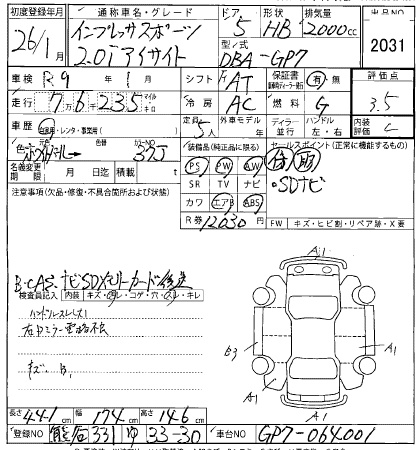 初度登録年月 通称車名・グレード ドア 形状 排気量 出品No
26/1月 インプレッサスポーツ 2.0iアイサイト 5 HB 2000cc 2031
型/式 DBA-GP7
車検 R9年 1月 シフト AT 保証書 有・無 評価点
走行 7万6千235 マイル キロ 冷房 AC 燃料 G 3.5
車歴 自家用・レンタ・事業用( ) 定員 5人 外車モデル 年 ディーラー 並行 ハンドル 左・右 内装評価 C
色 色番 カラーNo 37J
名義変更期限 月 日迄 積載量 t
装備品(純正品に限る) セールスポイント(正常に機能するもの)
PS PW AW
SR TV ナビ ・SDナビ
カワ エアB ABS
R券 12030円
注意事項(欠品・修復・不具合箇所および状態)
FW キズ・ヒビ割・リペア跡・X要
B-CAS、ナビSDメモリーカード
検査員記入 内装 キズ・スレ・コゲ・穴・スレ・キレ
ハンドルスレ(大)
キズ B1
A1
B3 A1
A1
A1
長さ 441cm 幅 174cm 高さ 146cm
登録No 331 ゆ 33-30 車台No GP7-064001